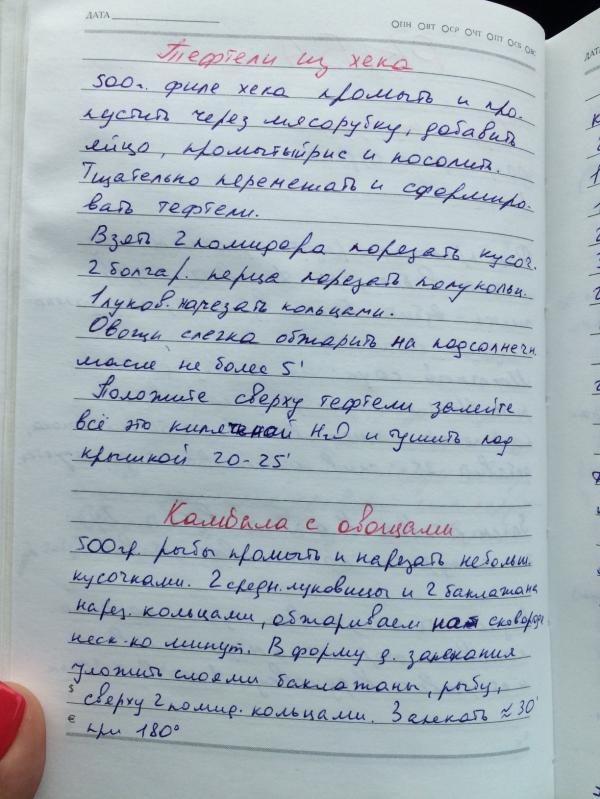 ДАТА
ПН ВТ СР ЧТ ПТ СБ ВС
Тефтели из хека
500г. филе хека промыть и про-
пустить через мясорубку, добавить
яйцо, промытый рис и посолить.
Тщательно перемешать и сформиро-
вать тефтели.
Взять 2 помидора порезать кусоч.
2 болгар. перца порезать полукольц.
1 луков. нарезать кольцами.
Овощи слегка обжарить на подсолнечн.
масле не более 5'
Положите сверху тефтели залейте
всё это кипяченой H₂O и тушить под
крышкой 20-25'
Камбала с овощами
500гр. рыбы промыть и нарезать небольш.
кусочками. 2 средн. луковицы и 2 баклажана
нарез. кольцами, обжариваем на сковороде
неск-ко минут. В форму д. запекания
уложить слоями баклажаны, рыбу,
$ сверху 2 помид. кольцами. Запекать ≈ 30'
€ при 180°
ДАТА